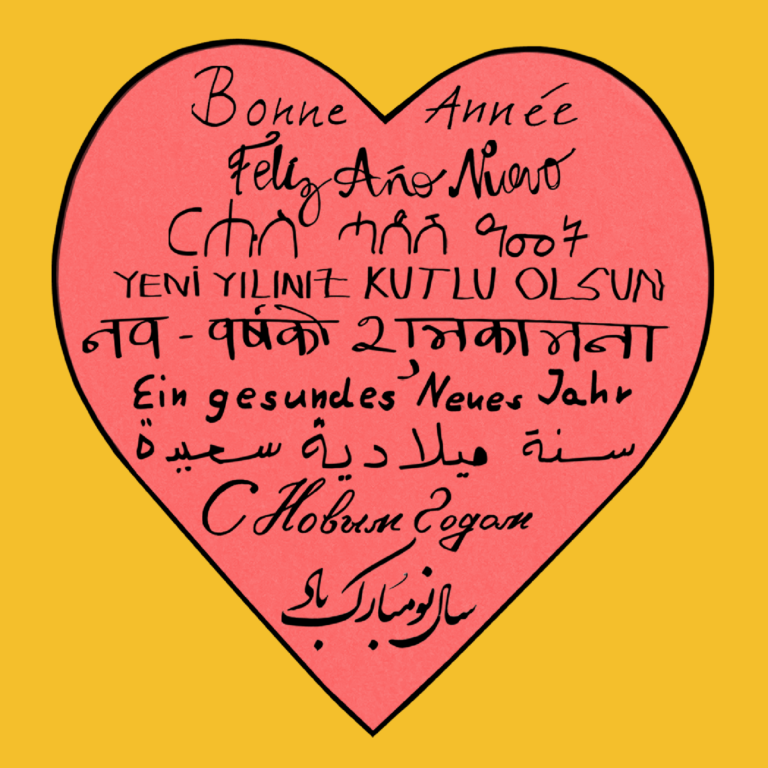 Bonne Année
Feliz Año Nuevo
ርሑስ
YENİ YILINIZ KUTLU OLSUN
नव - वर्षको शुभकामना
Ein gesundes Neues Jahr
سنة ميلادية سعيدة
С Новым Годам
سال نو مبارک باد